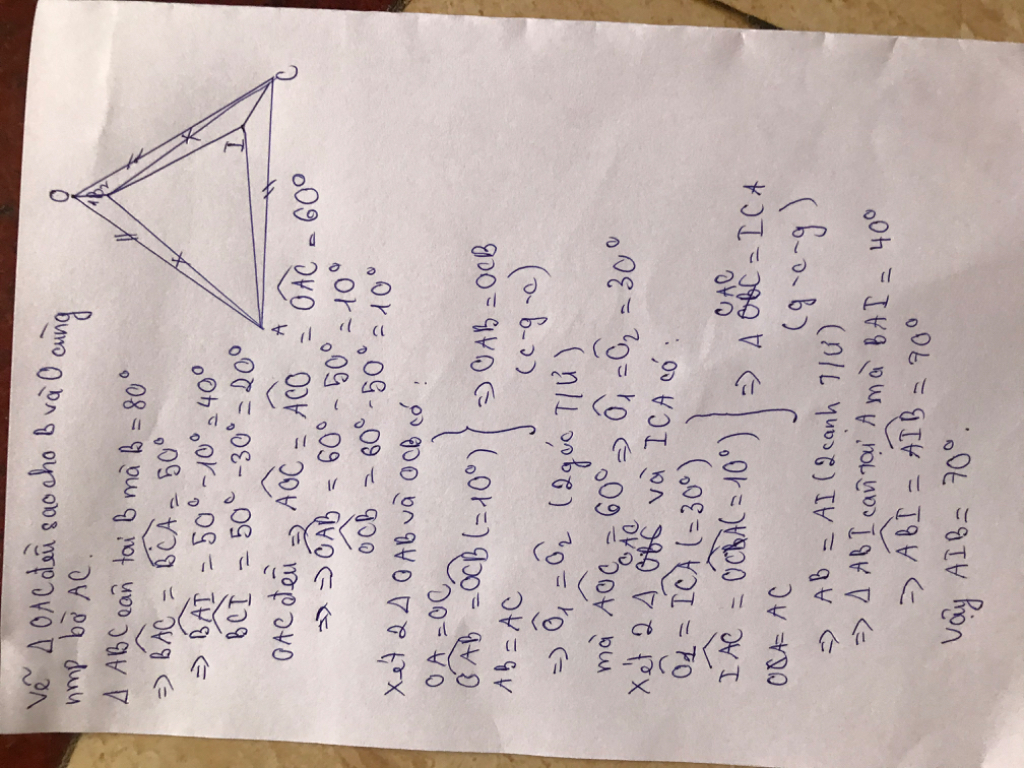 Vẽ Δ OAC đều sao cho B và O cùng
nmp bờ AC.
Δ ABC cân tại B mà B̂ = 80°
=> BAC = BCA = 50°
=> BAI = 50° - 10° = 40°
BCI = 50° - 30° = 20°
OAC đều => AOC = ACO = OAC = 60°
=> => OAB = 60° - 50° = 10°
OCB = 60° - 50° = 10°
Xét 2 Δ OAB và OCB có:
OA = OC
OAB = OCB (= 10°) } => OAB = OCB
AB = AC (c-g-c)
=> Ô1 = Ô2 (2 góc T/Ứ)
mà AOC = 60° => Ô1 = Ô2 = 30°
Xét 2 Δ OAC và ICA có:
Ô1 = ICA (= 30°)
IAC = OCA (= 10°) } => Δ OAC = ICA
OA = AC (g-c-g)
=> AB = AI (2 cạnh T/Ứ)
=> Δ ABI cân tại A mà BAI = 40°
=> ABI = AIB = 70°
Vậy AIB = 70°.
O
1
2
B
I
A
C